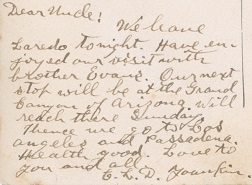 Dear Uncle!
We leave
Laredo tonight. Have en-
joyed our visit with
brother Evans. Our next
stop will be at the Grand
Canyon of Arizona. Will
reach there Sunday.
Thence we go to Los
angeles and Passadena.
Health good. Love to
you and all.